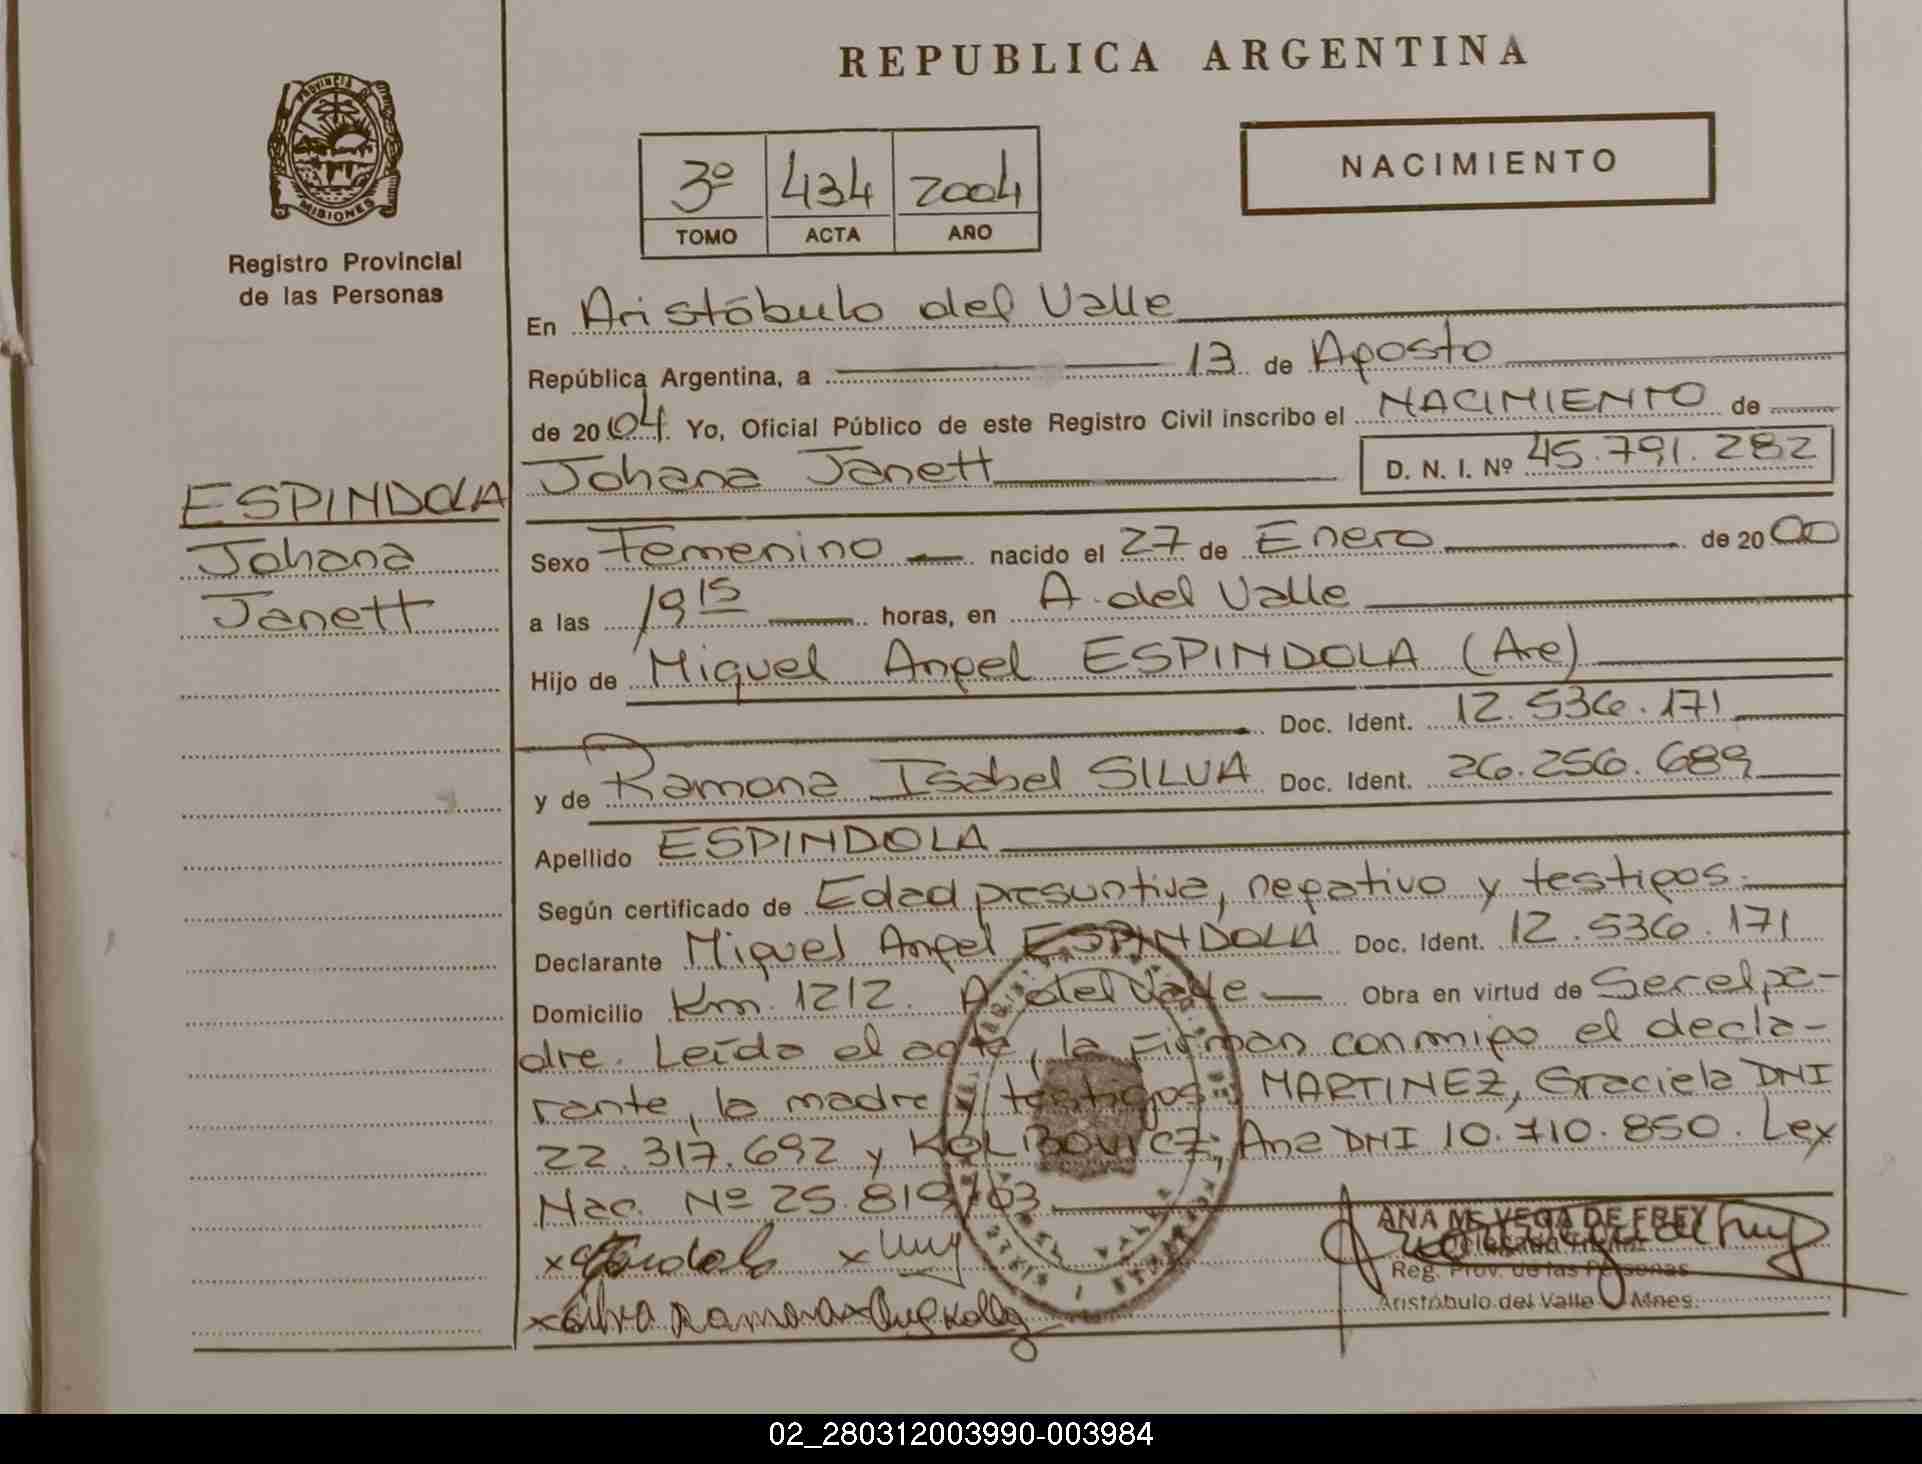 REPUBLICA ARGENTINA
PROVINCIA DE
MISIONES
Registro Provincial
de las Personas
3º 434 2004
TOMO ACTA AÑO
NACIMIENTO
En Aristóbulo del Valle
República Argentina, a 13 de Agosto
de 2004. Yo, Oficial Público de este Registro Civil inscribo el NACIMIENTO de
Johana Janett D. N. I. Nº 45.791.282
ESPINDOLA
Johana
Janett
Sexo Femenino nacido el 27 de Enero de 2000
a las 19 15 horas, en A. del Valle
Hijo de Miguel Angel ESPINDOLA (Are)
Doc. Ident. 12.536.171
y de Ramona Isabel SILVA Doc. Ident. 26.256.689
Apellido ESPINDOLA
Según certificado de Edad presuntiva, negativo y testigos.
Declarante Miguel Angel ESPINDOLA Doc. Ident. 12.536.171
Domicilio Km. 1212. A. del Valle Obra en virtud de Ser el pa-
dre. Leída el acta, la Firman conmigo el decla-
rante, la madre y testigos: MARTINEZ, Graciela DNI
22.317.692 y KOLIBOVICZ, Ana DNI 10.710.850. Ley
Nac. Nº 25.819/03
x x
x Silva Ramona x
ANA M. VEGA DE FREY
Reg. Prov. de las Personas
Aristóbulo del Valle Mnes.
02_280312003990-003984